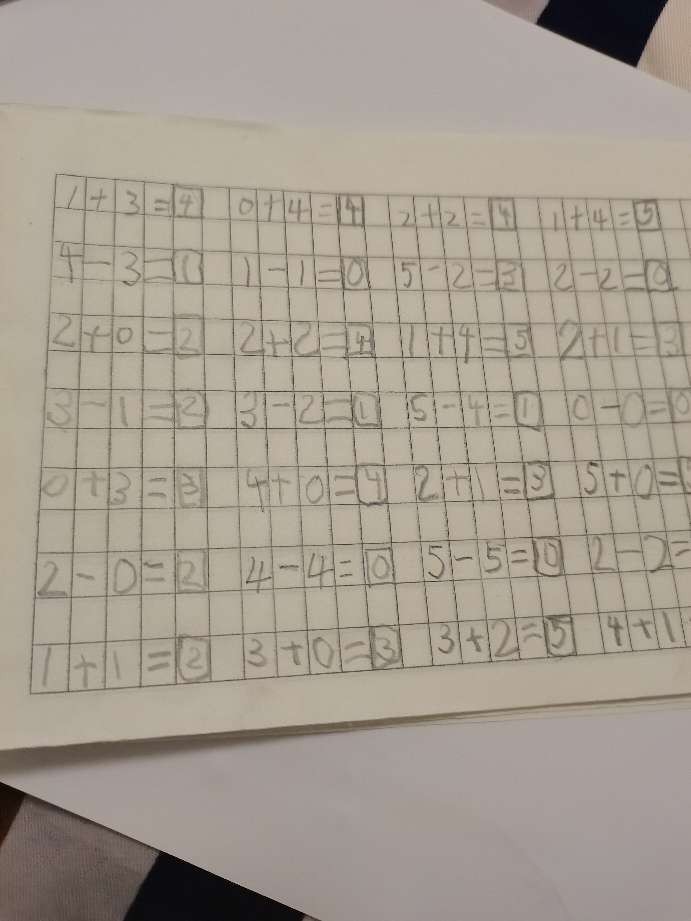 1+3=4 0+4=4 2+2=4 1+4=5
4-3=1 1-1=0 5-2=3 2-2=0
2+0=2 2+2=4 1+4=5 2+1=3
3-1=2 3-2=1 5-4=1 0-0=0
0+3=3 4+0=4 2+1=3 5+0=
2-0=2 4-4=0 5-5=0 2-2=
1+1=2 3+0=3 3+2=5 4+1